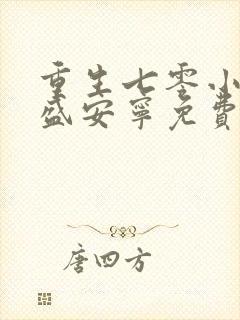 重生七零小
盛安宁免费
唐四方